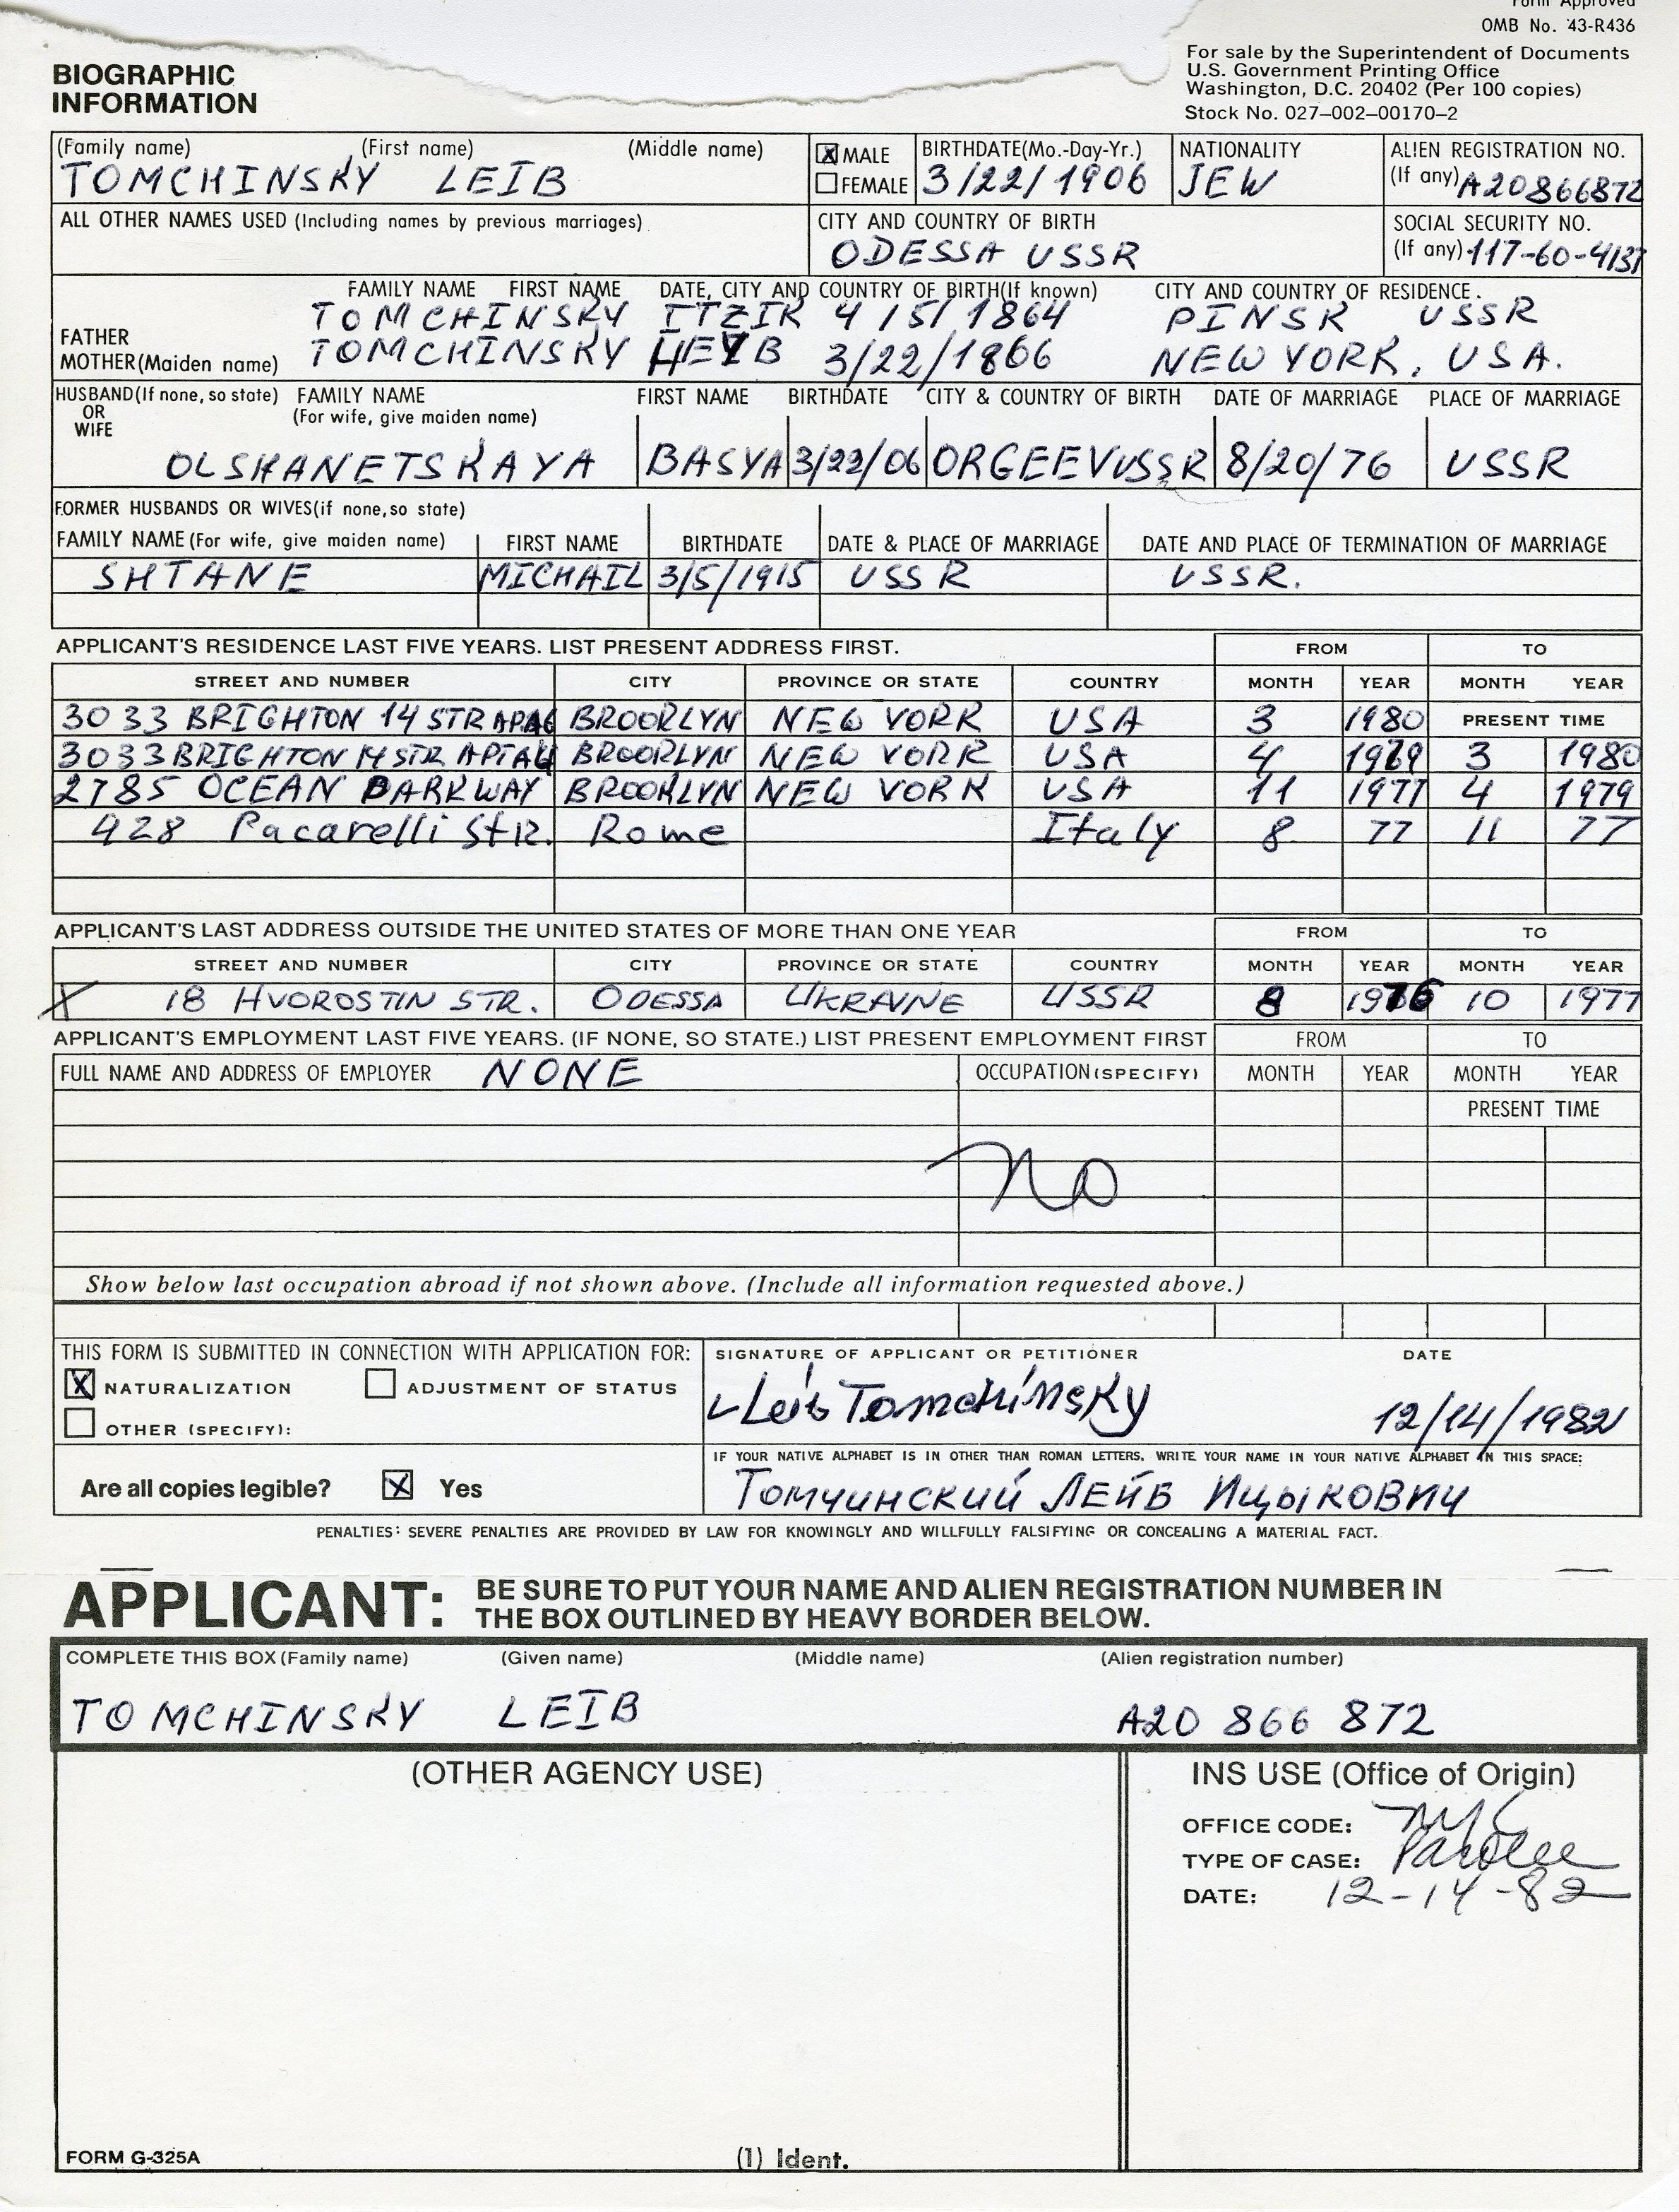 Form Approved
OMB No. 43-R436
For sale by the Superintendent of Documents
U.S. Government Printing Office
Washington, D.C. 20402 (Per 100 copies)
Stock No. 027–002–00170–2
BIOGRAPHIC
INFORMATION
(Family name) (First name) (Middle name) MALE BIRTHDATE(Mo.-Day-Yr.) NATIONALITY ALIEN REGISTRATION NO.
TOMCHINSKY LEIB X FEMALE 3/22/1906 JEW (If any) A20866872
ALL OTHER NAMES USED (Including names by previous marriages) CITY AND COUNTRY OF BIRTH SOCIAL SECURITY NO.
ODESSA USSR (If any) 117-60-4137
FAMILY NAME FIRST NAME DATE, CITY AND COUNTRY OF BIRTH(If known) CITY AND COUNTRY OF RESIDENCE.
FATHER TOMCHINSKY ITZIK 4/5/1864 PINSK USSR
MOTHER(Maiden name) TOMCHINSKY 3/22/1866 NEW YORK, USA.
HUSBAND(If none, so state) FAMILY NAME FIRST NAME BIRTHDATE CITY & COUNTRY OF BIRTH DATE OF MARRIAGE PLACE OF MARRIAGE
OR (For wife, give maiden name)
WIFE
OLSHANETSKAYA BASYA 3/22/06 ORGEEV USSR 8/20/76 USSR
FORMER HUSBANDS OR WIVES(if none,so state)
FAMILY NAME (For wife, give maiden name) FIRST NAME BIRTHDATE DATE & PLACE OF MARRIAGE DATE AND PLACE OF TERMINATION OF MARRIAGE
SHTANE MICHAIL 3/5/1915 USSR USSR.
APPLICANT'S RESIDENCE LAST FIVE YEARS. LIST PRESENT ADDRESS FIRST. FROM TO
STREET AND NUMBER CITY PROVINCE OR STATE COUNTRY MONTH YEAR MONTH YEAR
3033 BRIGHTON 14 STR BROOKLYN NEW YORK USA 3 1980 PRESENT TIME
3033 BRIGHTON 14 STR BROOKLYN NEW YORK USA 4 1979 3 1980
2785 OCEAN PARKWAY BROOKLYN NEW YORK USA 11 1977 4 1979
428 Pacarelli StR. Rome Italy 8 77 11 77
APPLICANT'S LAST ADDRESS OUTSIDE THE UNITED STATES OF MORE THAN ONE YEAR FROM TO
STREET AND NUMBER CITY PROVINCE OR STATE COUNTRY MONTH YEAR MONTH YEAR
X 18 HVOROSTIN STR. ODESSA UKRAINE USSR 8 1976 10 1977
APPLICANT'S EMPLOYMENT LAST FIVE YEARS. (IF NONE, SO STATE.) LIST PRESENT EMPLOYMENT FIRST FROM TO
FULL NAME AND ADDRESS OF EMPLOYER NONE OCCUPATION (SPECIFY) MONTH YEAR MONTH YEAR
PRESENT TIME
no
Show below last occupation abroad if not shown above. (Include all information requested above.)
THIS FORM IS SUBMITTED IN CONNECTION WITH APPLICATION FOR: SIGNATURE OF APPLICANT OR PETITIONER DATE
X NATURALIZATION ADJUSTMENT OF STATUS Leib Tomchinsky 12/14/1982
OTHER (SPECIFY):
IF YOUR NATIVE ALPHABET IS IN OTHER THAN ROMAN LETTERS, WRITE YOUR NAME IN YOUR NATIVE ALPHABET IN THIS SPACE:
Are all copies legible? X Yes Томчинский ЛЕЙБ Ицыкович
PENALTIES: SEVERE PENALTIES ARE PROVIDED BY LAW FOR KNOWINGLY AND WILLFULLY FALSIFYING OR CONCEALING A MATERIAL FACT.
APPLICANT: BE SURE TO PUT YOUR NAME AND ALIEN REGISTRATION NUMBER IN
THE BOX OUTLINED BY HEAVY BORDER BELOW.
COMPLETE THIS BOX (Family name) (Given name) (Middle name) (Alien registration number)
TOMCHINSKY LEIB A20 866 872
(OTHER AGENCY USE) INS USE (Office of Origin)
OFFICE CODE: NYC
TYPE OF CASE: Parolee
DATE: 12-14-82
FORM G-325A (1) Ident.